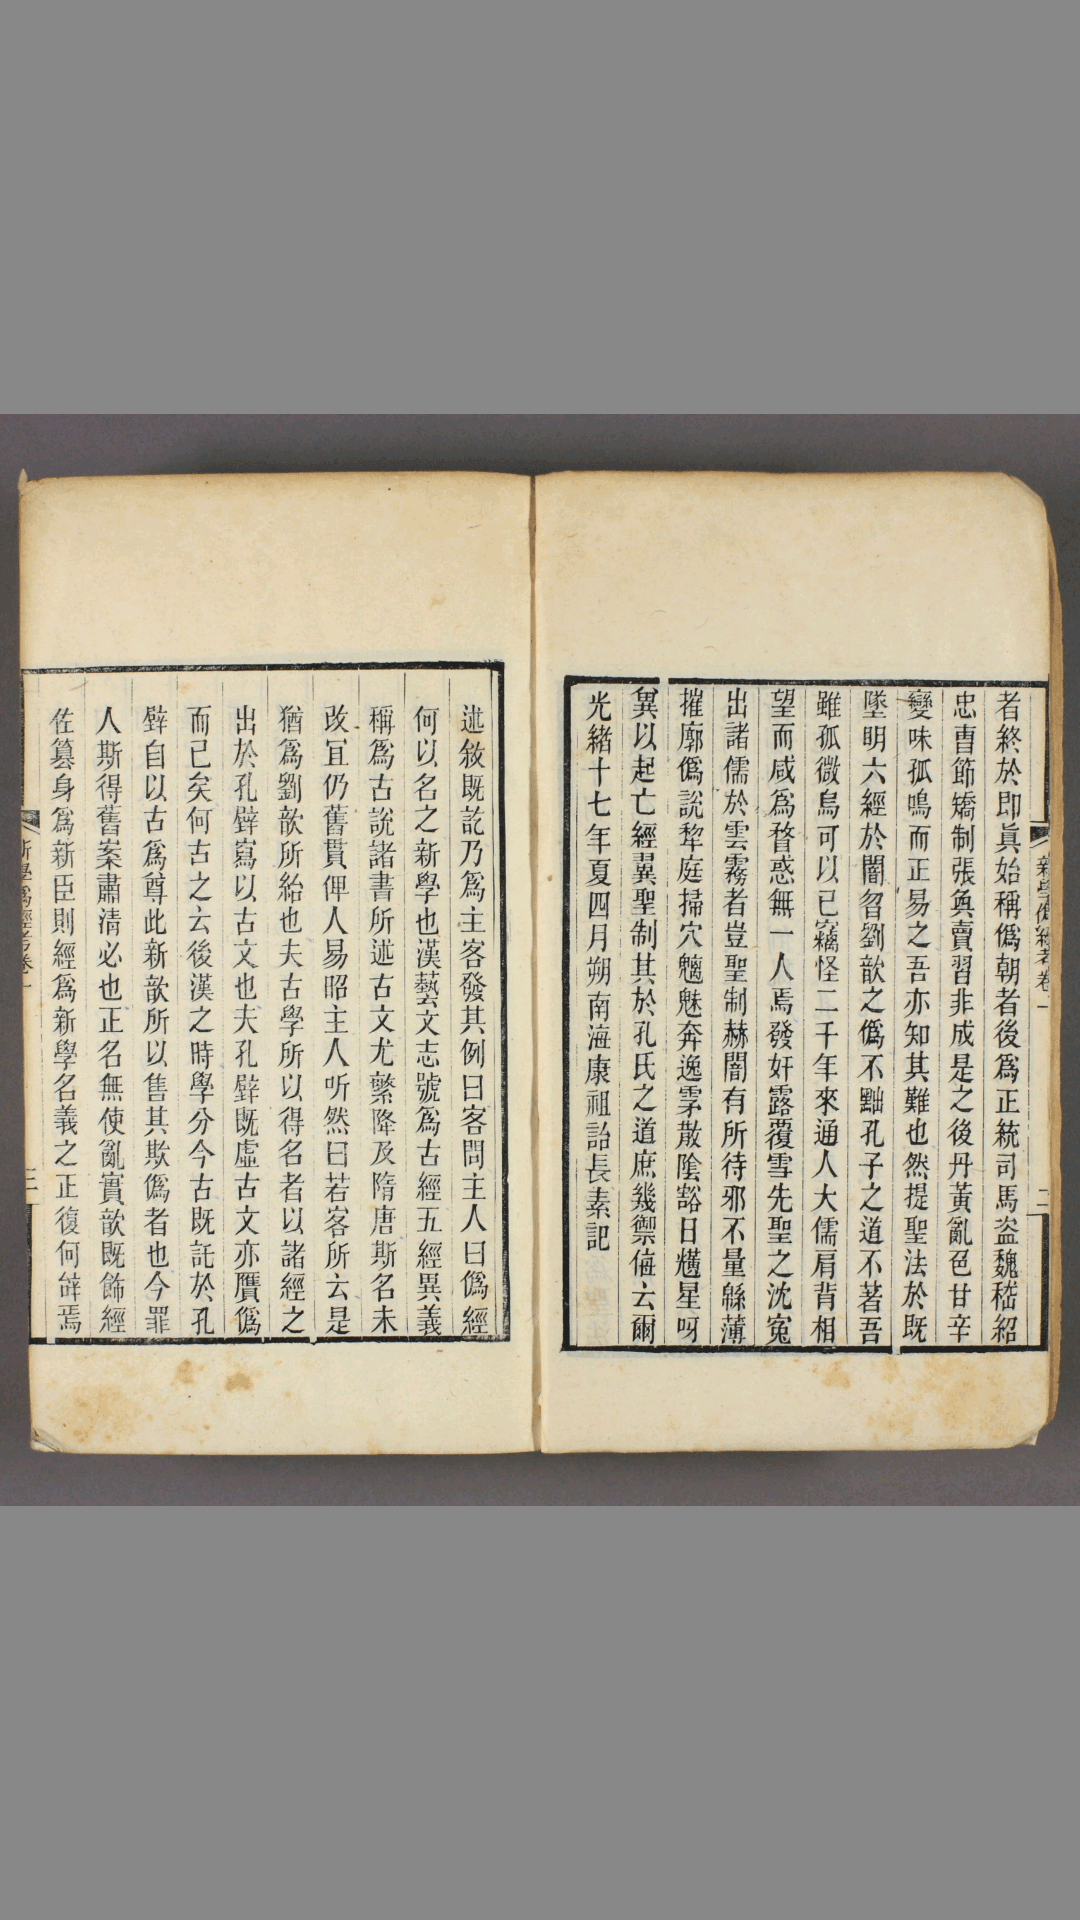 者終於即眞始稱僞朝者後爲正統司馬盗魏嵇紹
忠曺節矯制張奐賣習非成是之後丹黃亂色甘辛
變味孤鳴而正易之吾亦知其難也然提聖法於既
墜明六經於闇曶劉歆之僞不黜孔子之道不著吾
雖孤微烏可以已竊怪二千年來通人大儒肩背相
望而咸爲瞀惑無一人焉發奸露覆雪先聖之沈寃
出諸儒於雲霧者豈聖制赫闇有所待邪不量緜薄
摧廓僞說犂庭掃穴魑魅奔逸雺散陰豁日㸌星呀
兾以起亡經翼聖制其於孔氏之道庶幾禦侮云爾
光緒十七年夏四月朔南海康祖詒長素記
新學僞經考卷一
二
述敘既訖乃爲主客發其例曰客問主人曰僞經
何以名之新學也漢藝文志號爲古經五經異義
稱爲古說諸書所述古文尤繁降及隋唐斯名未
改宜仍舊貫俾人易昭主人听然曰若客所云是
猶爲劉歆所紿也夫古學所以得名者以諸經之
出於孔壁寫以古文也夫孔壁既虛古文亦贋僞
而已矣何古之云後漢之時學分今古既託於孔
壁自以古爲尊此新歆所以售其欺僞者也今罪
人斯得舊案肅清必也正名無使亂實歆既飾經
佐篡身爲新臣則經爲新學名義之正復何辭焉
新學僞經考卷一
三